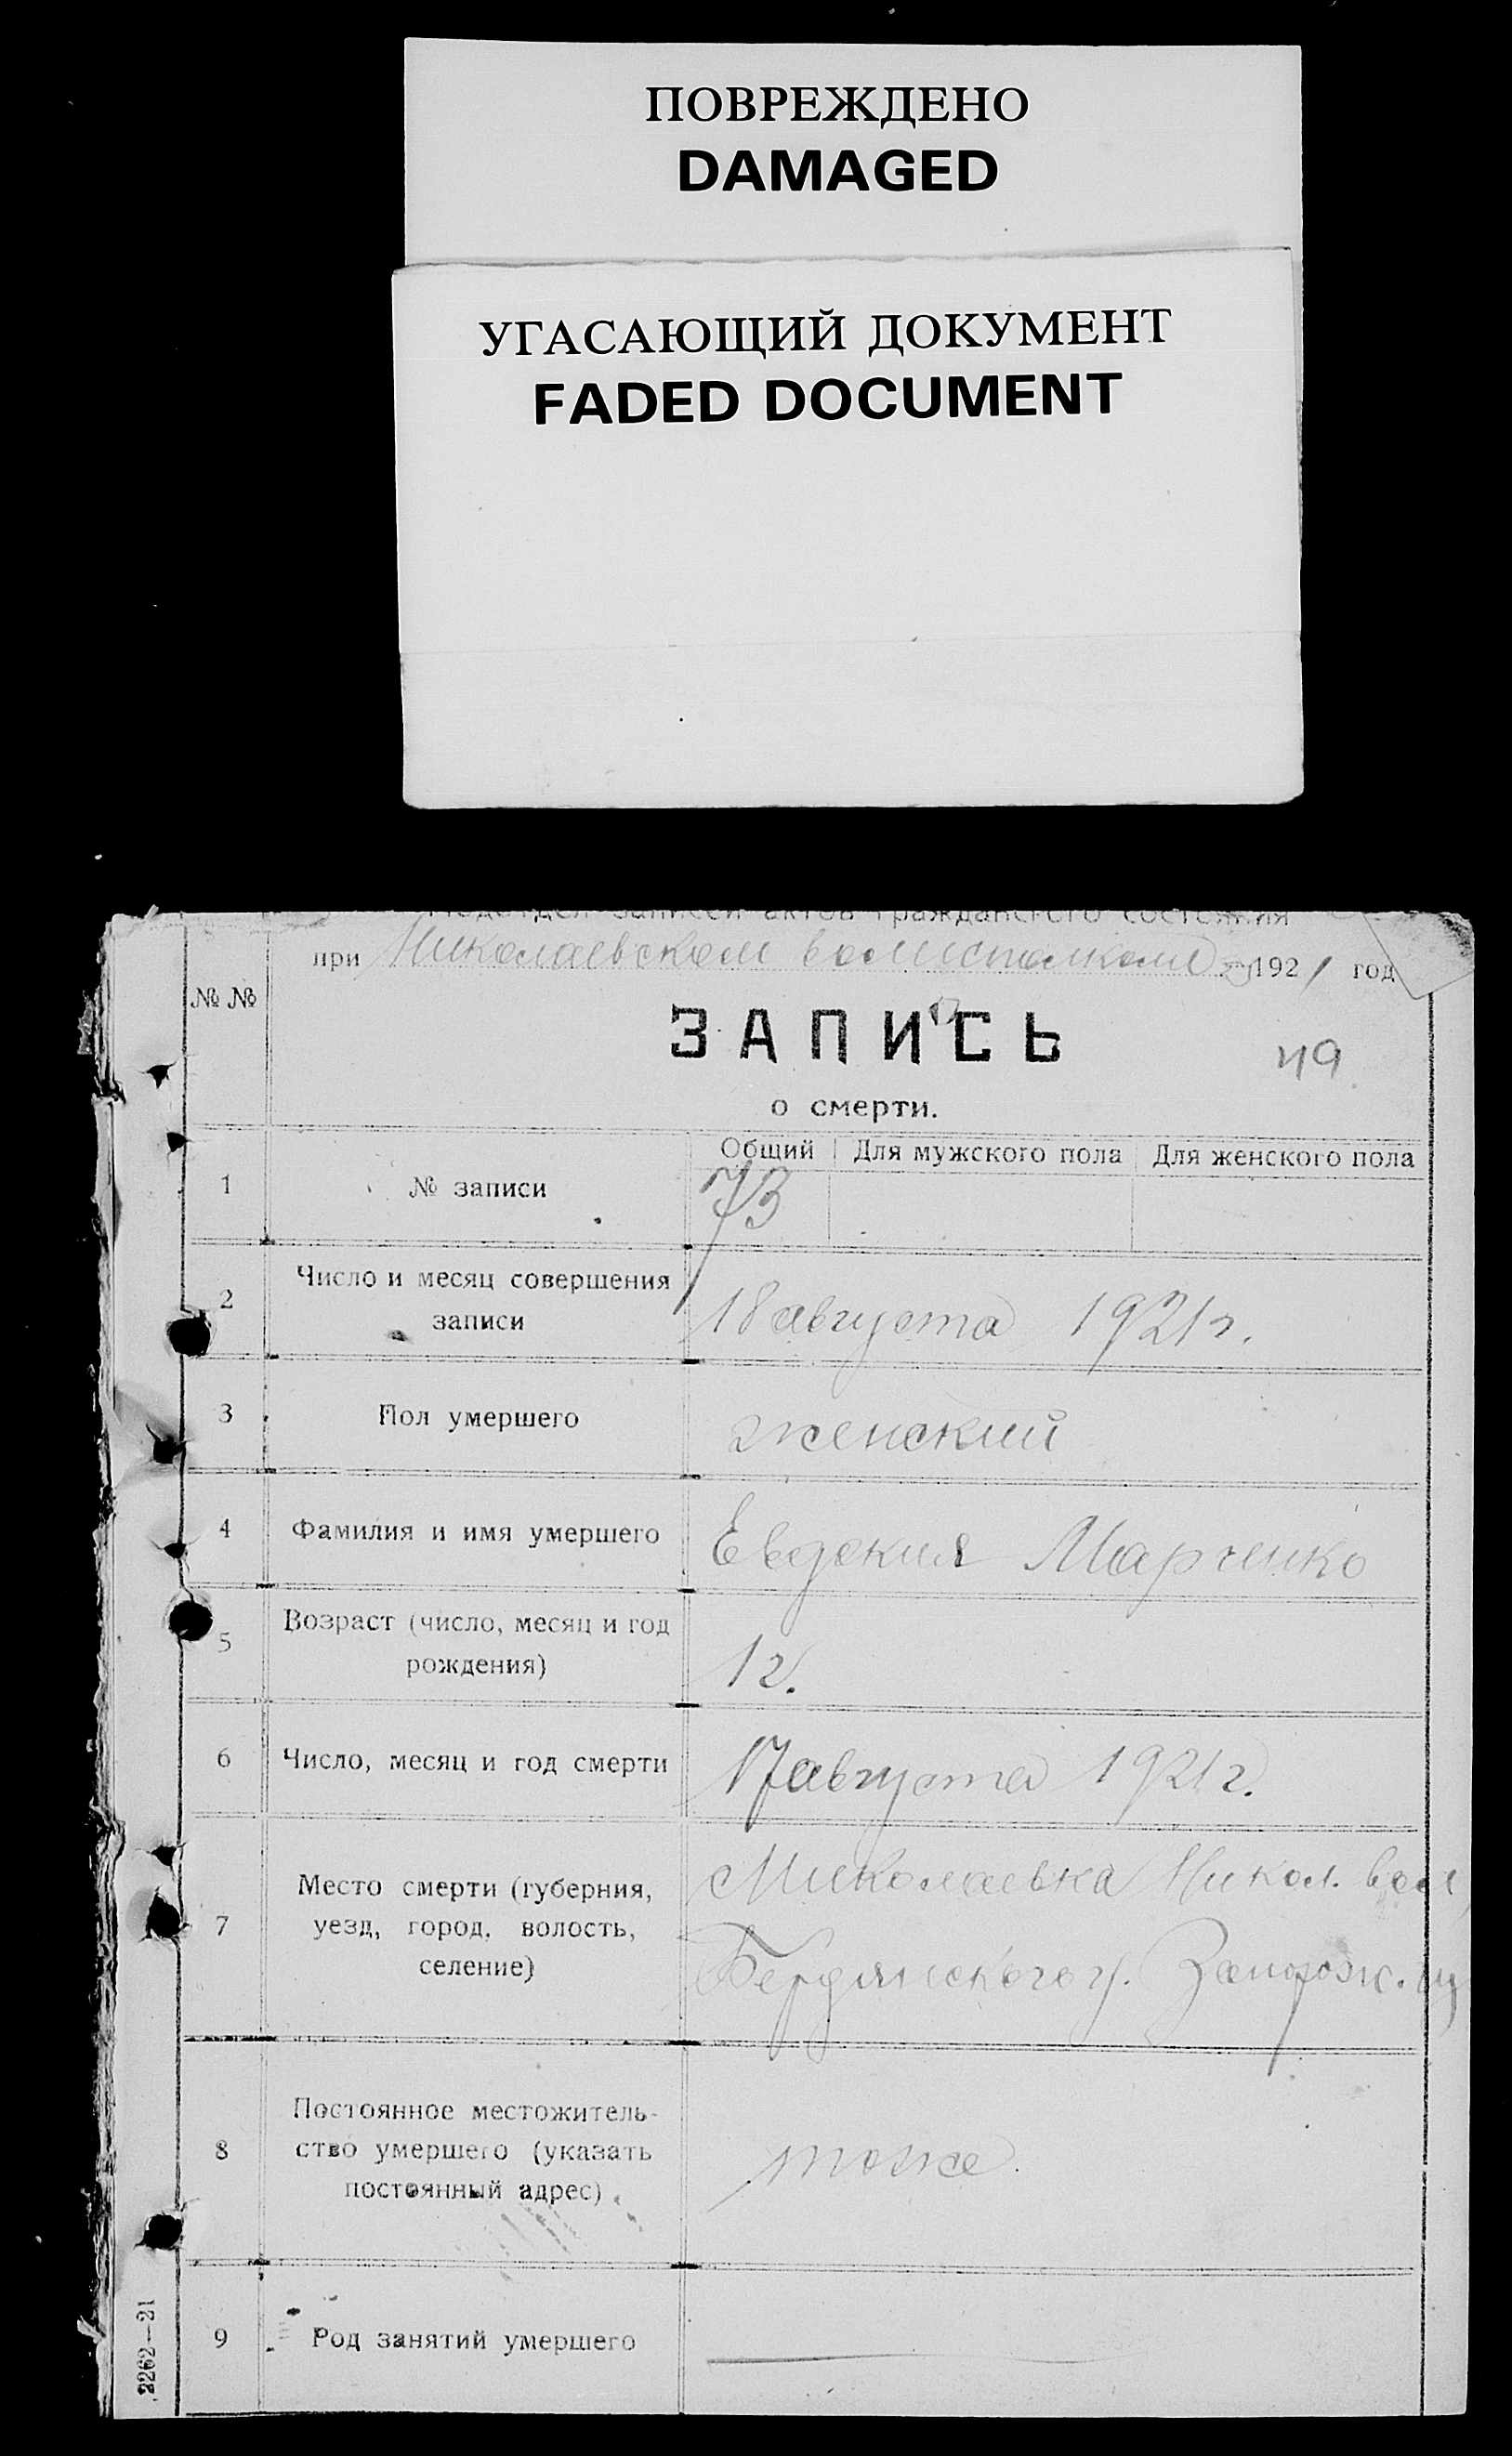 ПОВРЕЖДЕНО
DAMAGED
УГАСАЮЩИЙ ДОКУМЕНТ
FADED DOCUMENT
Подотдел записей актов гражданского состояния
при Николаевском волисполкоме 1921 год
№ №
ЗАПИСЬ
49
о смерти.
Общий Для мужского пола Для женского пола
1 № записи 73
2 Число и месяц совершения
записи 18 августа 1921 г.
3 Пол умершего женский
4 Фамилия и имя умершего Евдокия Марченко
5 Возраст (число, месяц и год
рождения) 1 г.
6 Число, месяц и год смерти 17 августа 1921 г.
Николаевка Никол. вол
7 Место смерти (губерния,
уезд, город, волость,
селение)
Бердянского у. Запорож. гу
8 Постоянное местожитель-
ство умершего (указать
постоянный адрес)
тоже.
9 Род занятий умершего
2262—21